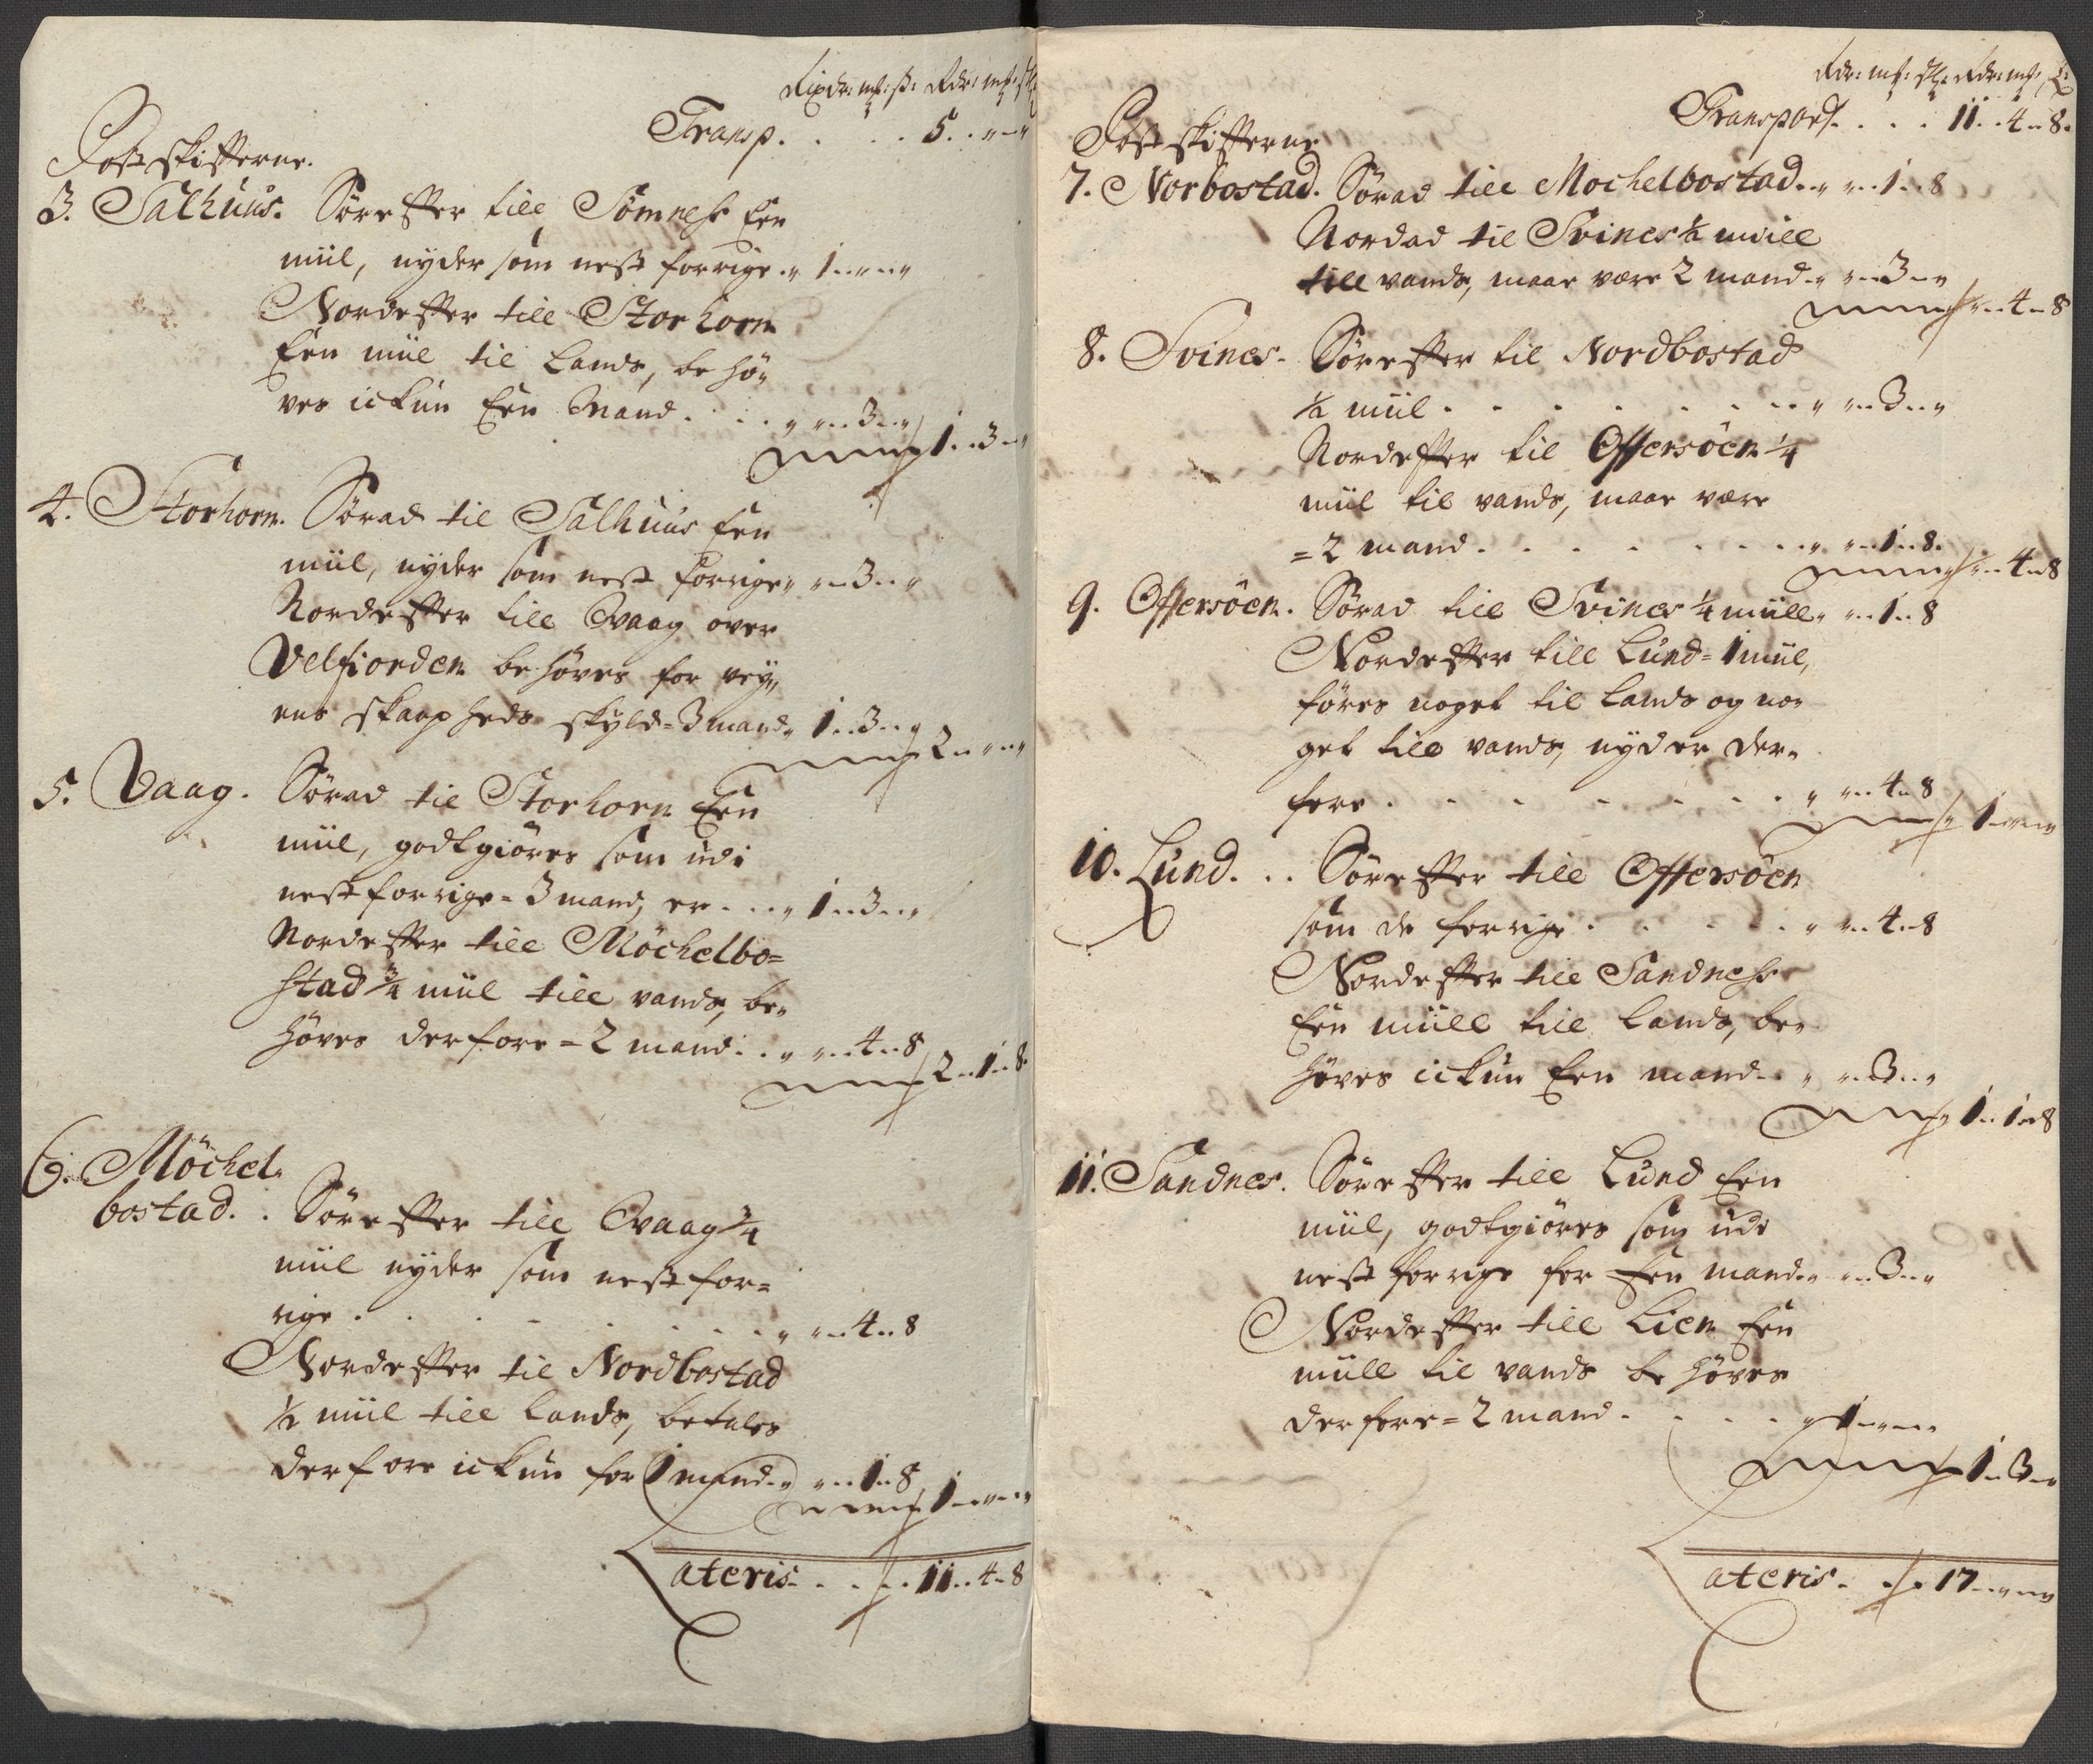 Rixdr: mk: ß: Rdr: mk: ß
Transp. . . . 5. . " - "
Postskifterne.
3. Salhuus. Sørefter till Sømnes Een
miil, nyder som nest forrige . " 1 . . " . . "
Nordefter till Storhorn
Een miil til Lands, behø,,
ves ickun Een Mand . . . " " . . 3 . . "
1 . . 3 . . "
4. Storhorn. Sørad til Salhuus Een
miil, nyder som nest forrige " " . . 3 . . "
Nordefter till Waag over
Velfiorden behøves for vey,,
ens skarpheds skyld = 3 mand " 1 . . 3 . . "
2 . . " . . "
5. Vaag. Sørad til Storhorn Een
miil, godtgiøres som udi
nestforrige = 3 mand, er . . . " 1 . . 3 . . "
Nordefter till Møchelbo=
stad 3/4 miil till vands, be,,
høves derfore = 2 mand . . " " . . 4 . . 8
2 . . 1 . . 8
6. Møchel,,
bostad. . Sørefter till Waag 3/4
miil nyder som nestfor=
rige . . . . . . . " " . . 4 . . 8
Nordefter til Nordbostad
1/2 miil till Lands, betales
derfore ickun for 1 mand . " " . . 1 . . 8
1 . . " . . "
Lateris . . . . 11 . . 4 . . 8
Rdr: mk: ß: Rdr: mk: ß:
Transport . . . . 11 . . 4 . . 8.
Postskifterne
7. Norbostad. Sørad till Mochelbostad . . " " . . 1 . . 8
Nordad til Svines 1/2 miill
till vands, maae være 2 mand . " " . . 3 . . "
" . . 4 . . 8
8. Svines. Sørefter til Nordbostad
1/2 miil . . . . . . . . " " . . 3 . . "
Nordefter til Offersøen 1/4
miil til vands, maae være
= 2 mand . . . . . . . " " . . 1 . . 8.
" . . 4 . . 8
9. Offersøen. Sørad till Svines 1/4 miill " " . . 1 . . 8
Nordefter till Lund = 1 miil,
føres noget til Lands og no,,
get till vands, nyder der,,
fore . . . . . . . " " . . 4 . . 8
1 . . " . . "
10. Lund. . . Sørefter till Offersøen
som de forrige . . . . . " " . . 4 . . 8
Nordefter till Sandnes
Een miill till Lands, be,,
høves ickun Een mand . . " " . . 3 . . "
1 . . 1 . . 8
11. Sandnes. Sørefter till Lund Een
miil, godtgiøres som udi
nest forrige for Een mand . " " . . 3 . . "
Nordefter till Lien Een
miill til vands behøves
derfore = 2 mand . . . . " 1 . . " . . "
1 . . 3 . . "
Lateris . . . 17 . . " . . "